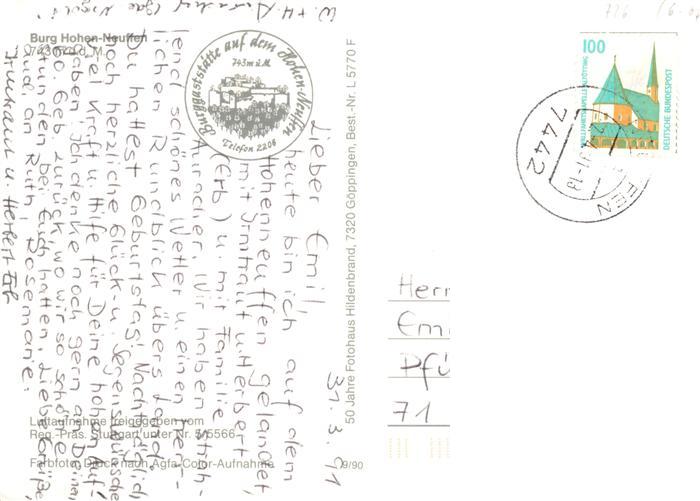 Burg Hohen-Neuffen
743 m ü. M.
Burggaststätte auf dem Hohen-Neuffen
743 m ü. M.
Telefon 2206
31.3.91
Lieber Emil
heute bin ich auf dem
Hohenneuffen gelandet
mit Irmtraut u. Herbert
(Erb) u. mit Familie
Wir haben strah-
lend schönes Wetter u. einen herr-
lichen Rundblick übers Land.
Du hattest Geburtstag! Nachträglich
noch herzliche Glück- u. Segenswünsche
Kraft u. Hilfe für Deine hohen Auf-
gaben. Ich denke noch gern an Deinen
60. Geb. zurück wo wir so schöne
Stunden bei Euch hatten. Liebe Grüße,
auch an Ruth, Rosemarie.
Irmtraut u. Herbert Erb
Luftaufnahme freigegeben vom
Reg.-Präs. Stuttgart unter Nr. 5/5566
Farbfoto, Druck nach Agfa-Color-Aufnahme
9/90
50 Jahre Fotohaus Hildenbrand, 7320 Göppingen, Best.-Nr. L 5770 F
100
WALLFAHRTSKAPELLE ALTÖTTING
DEUTSCHE BUNDESPOST
7442
FFEN
Herr
Emi
Pfü
71